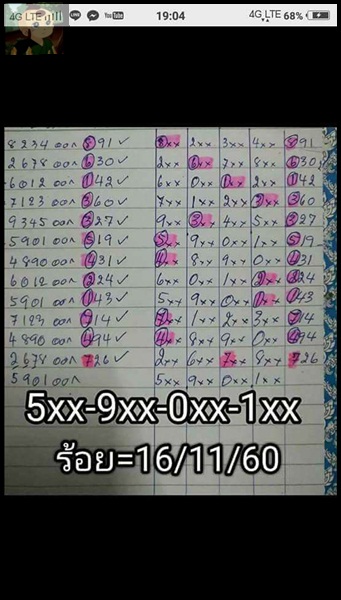 4G LTE 19:04 4G LTE 68%
8234 ออก 891 ✓ 8xx 2xx 3xx 4xx 891
2678 ออก 630 ✓ 2xx 6xx 7xx 8xx 630
6012 ออก 142 ✓ 6xx 0xx 1xx 2xx 142
7123 ออก 360 ✓ 7xx 1xx 2xx 3xx 360
9345 ออก 327 ✓ 9xx 3xx 4xx 5xx 327
5901 ออก 519 ✓ 5xx 9xx 0xx 1xx 519
4890 ออก 431 ✓ 4xx 8xx 9xx 0xx 431
6012 ออก 224 ✓ 6xx 0xx 1xx 2xx 224
5901 ออก 143 ✓ 5xx 9xx 0xx 1xx 143
7123 ออก 714 ✓ 7xx 1xx 2xx 3xx 714
4890 ออก 494 ✓ 4xx 8xx 9xx 0xx 494
2678 ออก 726 ✓ 2xx 6xx 7xx 8xx 726
5901 ออก 5xx 9xx 0xx 1xx
5xx-9xx-0xx-1xx
ร้อย=16/11/60